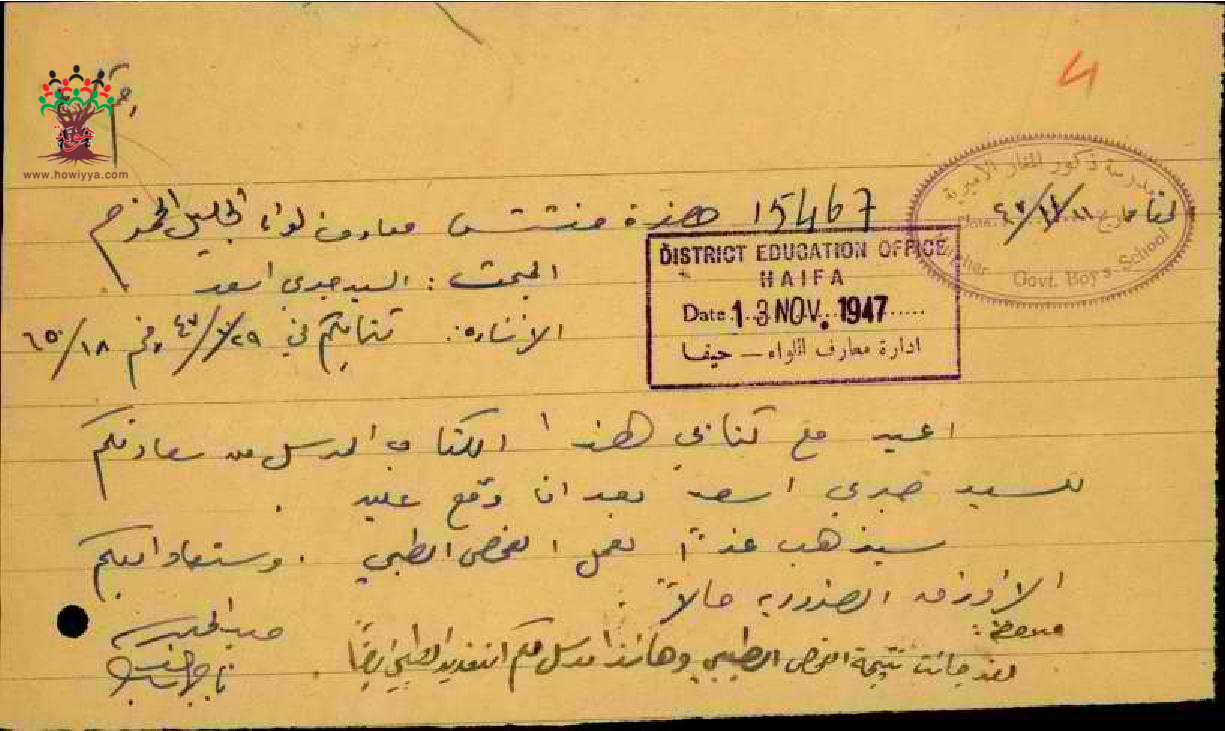 هوية
www.howiyya.com
4
مدرسة ذكور المغار الاميرية
Date
Govt. Boys School
15467 حضرة مفتش معارف لواء الجليل المحترم
DISTRICT EDUCATION OFFICE
HAIFA
Date 13 NOV. 1947
ادارة معارف اللواء – حيفا
المبحث : السيد صبحي اسعد
الاشارة: كتابكم في ٢٩/ /٤٧ رقم ٦٥/١٨
اعيد مع كتابي هذا الكتاب المرسل من سعادتكم
للسيد صبحي اسعد بعد ان وقع عليه .
سيذهب غداً لعمل الفحص الطبي . وستعاد اليكم
الاوراق الضرورية حالاً .
ملاحظة :
لقد جائت نتيجة الفحص الطبي وهانذا مرسل لكم التقرير الطبي ايضاً .